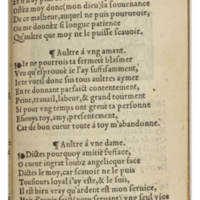 Et n'ay pouoir
Ay moy donc (mon dieu) la souuenance
De ce malheur, auquel ne puis pouruoir,
Ou me donnez si longue patience
Qu'aultre que moy ne le puisse scauoir.
¶ Aultre à vng amant.
Ie ne pourrois ta fermeté blasmer
Veu qu'esprouué ie l'ay suffisamment,
Ie te veul donc sur tous aultres aymer
En te donnant parfaict contentement,
Peine, trauail, labeur, & grand tourment
Si pour vng temps ont greué ta personne
Esiouys toy, amy, presentement,
Car de bon cueur toute à toy m'abandonne.
¶ Aultre à vne dame.
Dictes pourquoy amitié s'efface,
O cueur ingrat soubz angelicque face
Dictes le moy, car scauoir ne le puis
Tousiours loyal i'ay esté, & le suis,
Il est bien vray qu'ardent est mon seruice,
seruant) vng seul vice